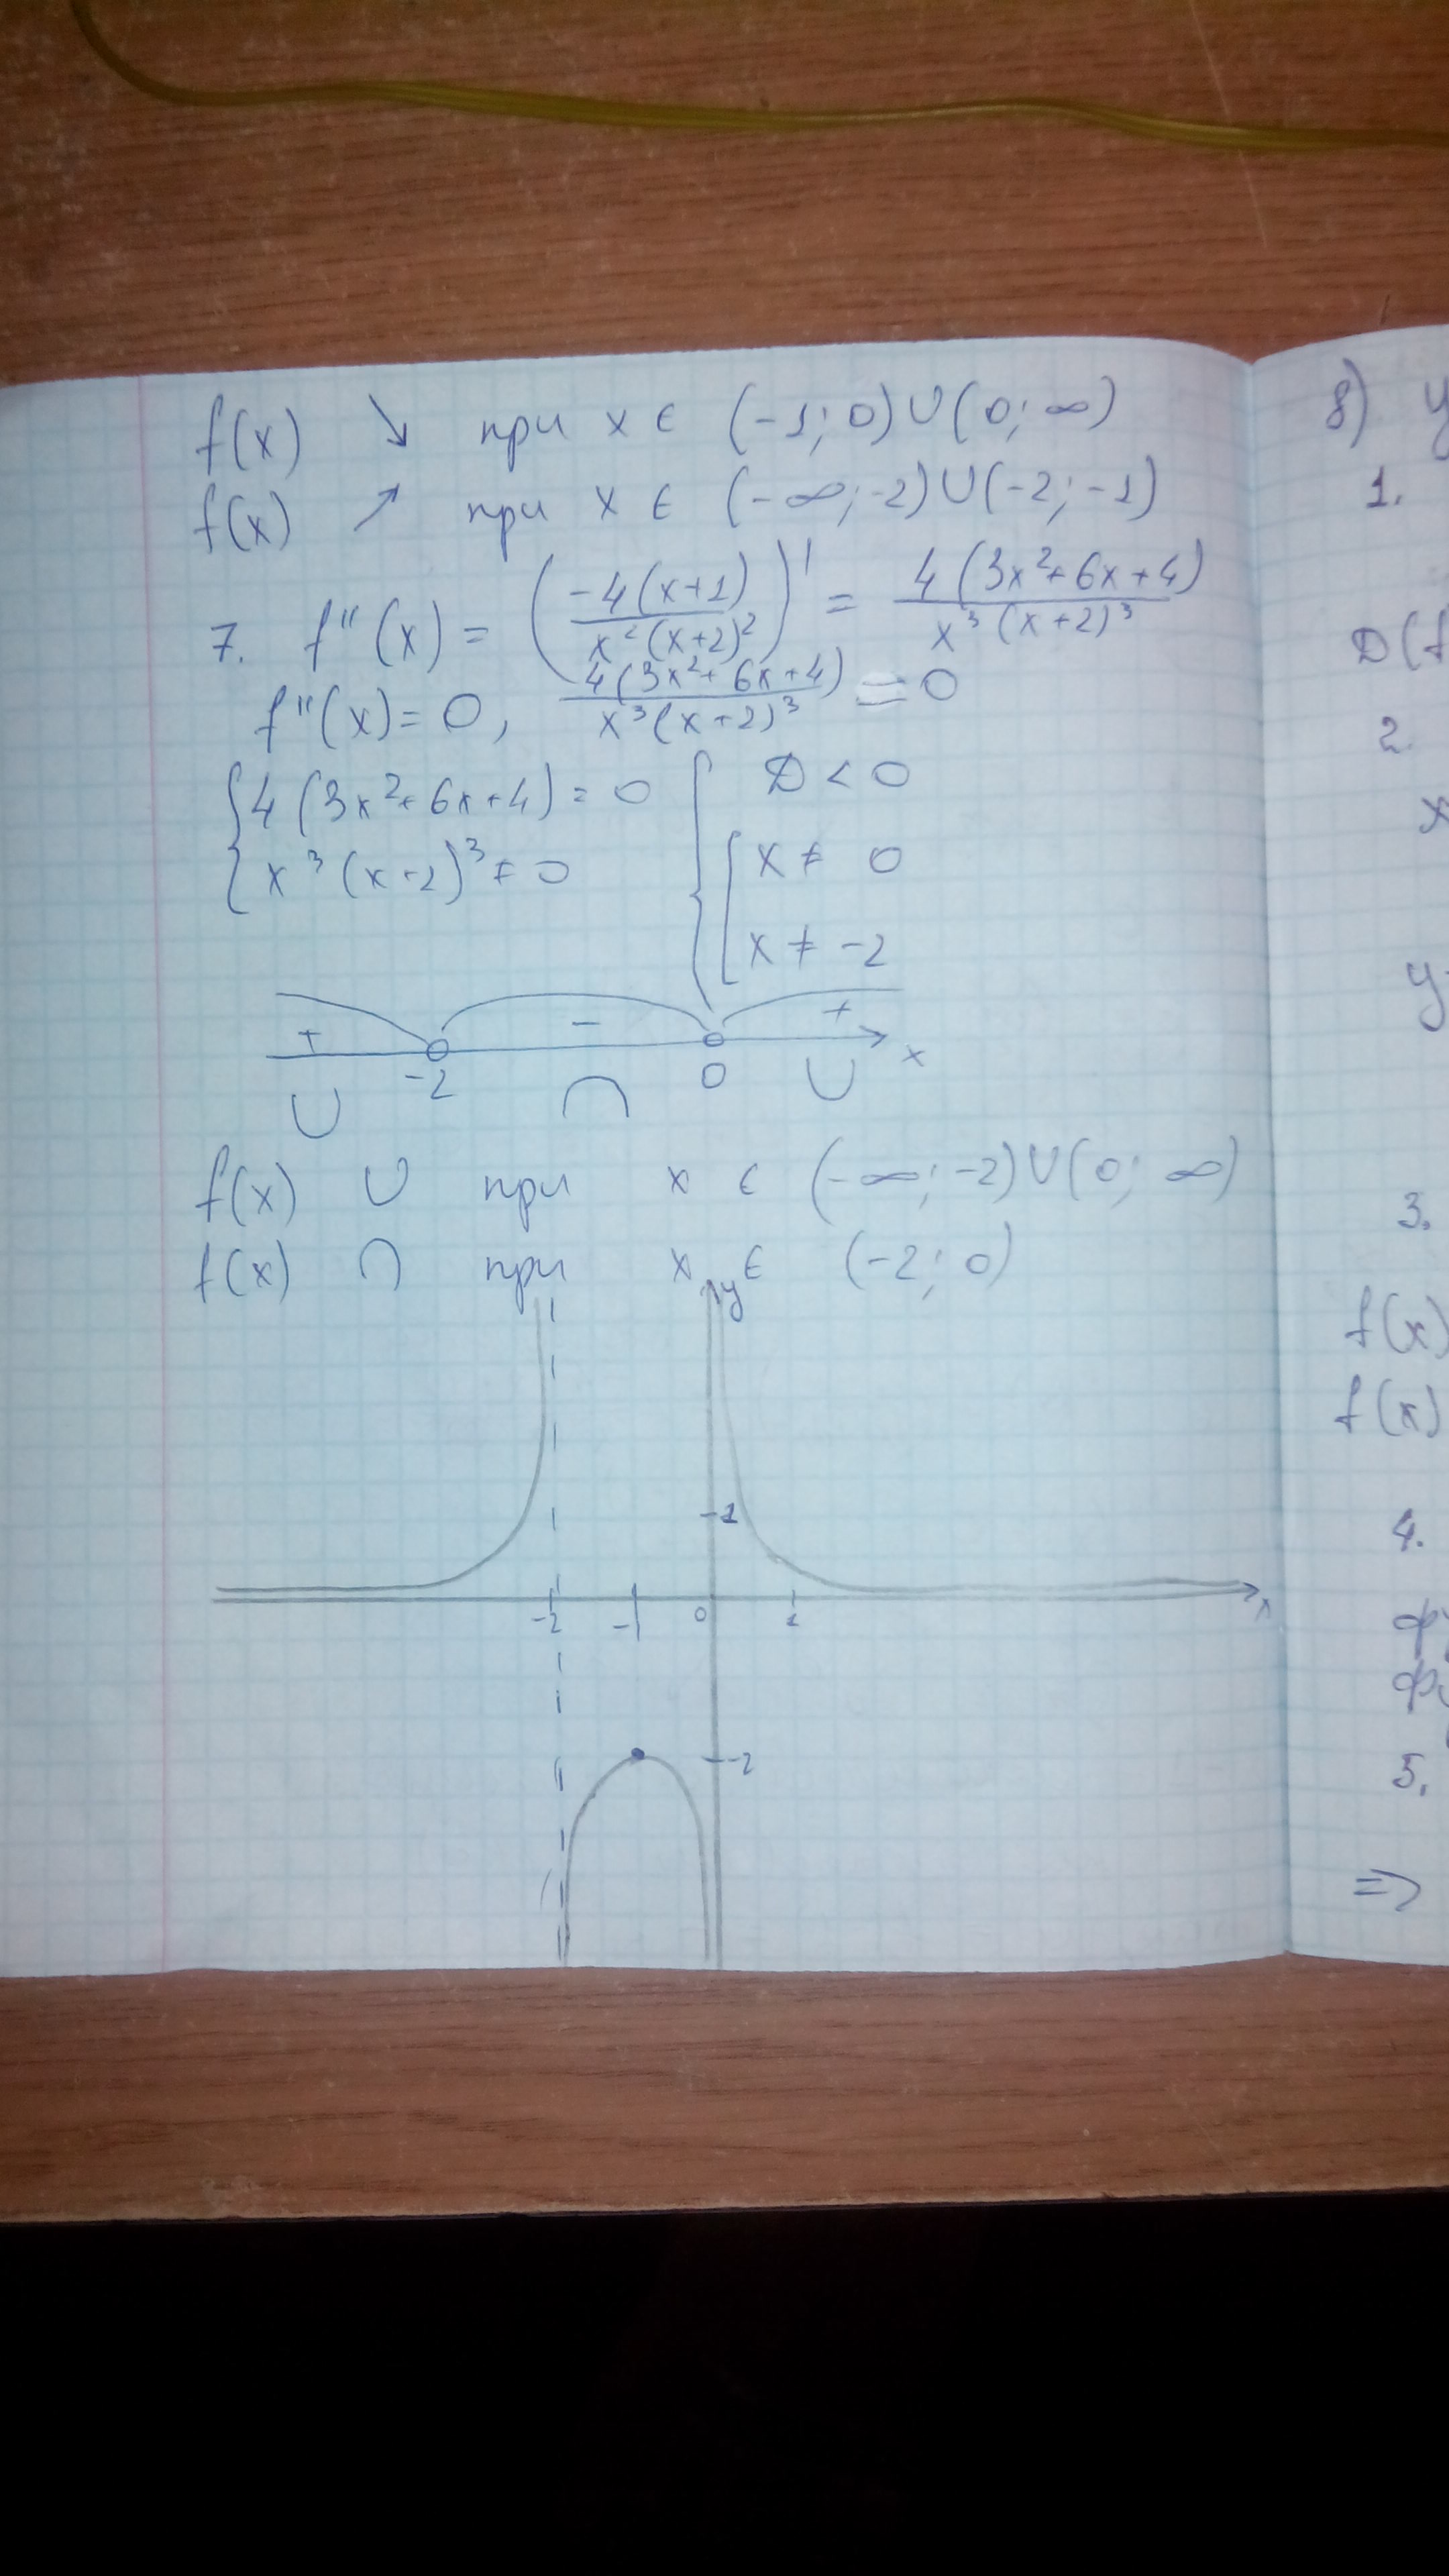 f(x) ↘ при x ∈ (-1; 0)∪(0; ∞)
f(x) ↗ при x ∈ (-∞; -2)∪(-2; -1)
7. f''(x) = (-4(x+1) / x²(x+2)²)' = 4(3x²+6x+4) / x³(x+2)³
f''(x) = 0, 4(3x²+6x+4) / x³(x+2)³ = 0
{ 4(3x²+6x+4) = 0 { D < 0
x³(x+2)³ ≠ 0 [ x ≠ 0
x ≠ -2
+ - +
-2 0 x
∪ ∩ ∪
f(x) ∪ при x ∈ (-∞; -2)∪(0; ∞)
f(x) ∩ при x ∈ (-2; 0)
y
1
-2 -1 0 1 x
-2
8) y
1.
D(f
2.
x
y
3.
f(x)
f(x)
4.
5.
=>